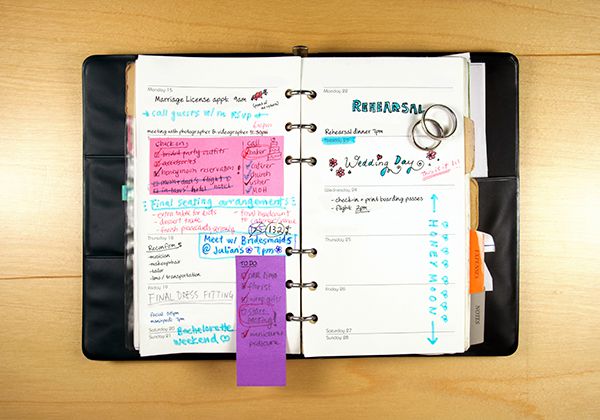 Monday 15
Marriage License appt. 9am
→ call guests w/ no RSVP
meeting with photographer & videographer 12:30pm
Check on:
bridal party outfits
accessories
honeymoon reservations
mom & dad's flight
in-laws' hotel
call
caterer
church
usher
MOH
Final seating arrangements
- extra table for kids
- dessert table
- finish placecards
- final headcount
to caterer
Thursday 18
Meet w/ Bridesmaids
@ Julian's 7pm
Reconfirm
- musician
- makeup/hair
- tailor
- limo / transportation
Friday 19
FINAL DRESS FITTING
facial
manicure
Saturday 20
Sunday 21
Bachelorette
Weekend
TO DO
call limo
florist
wrap gifts
start
packing!
manicure
pedicure
Monday 22
REHEARSAL
Rehearsal dinner 7pm
Tuesday 23
Wedding Day
This is it!
Wednesday 24
- check-in + print boarding passes
- flight: 2pm
Thursday 25
Friday 26
Saturday 27
Sunday 28
HONEYMOON
NOTES